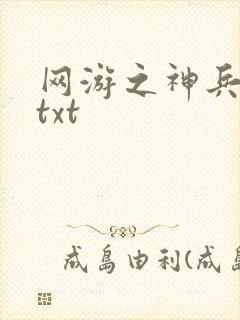 网游之神兵
txt
成岛由利(成岛